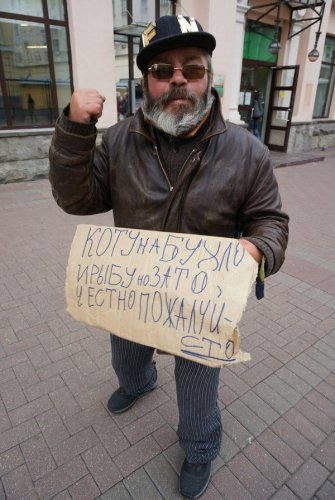 КОТУ НА БУХЛО
И РЫБУ НО ЗАТО,
ЧЕСТНО ПОЖАЛУЙ-
СТО